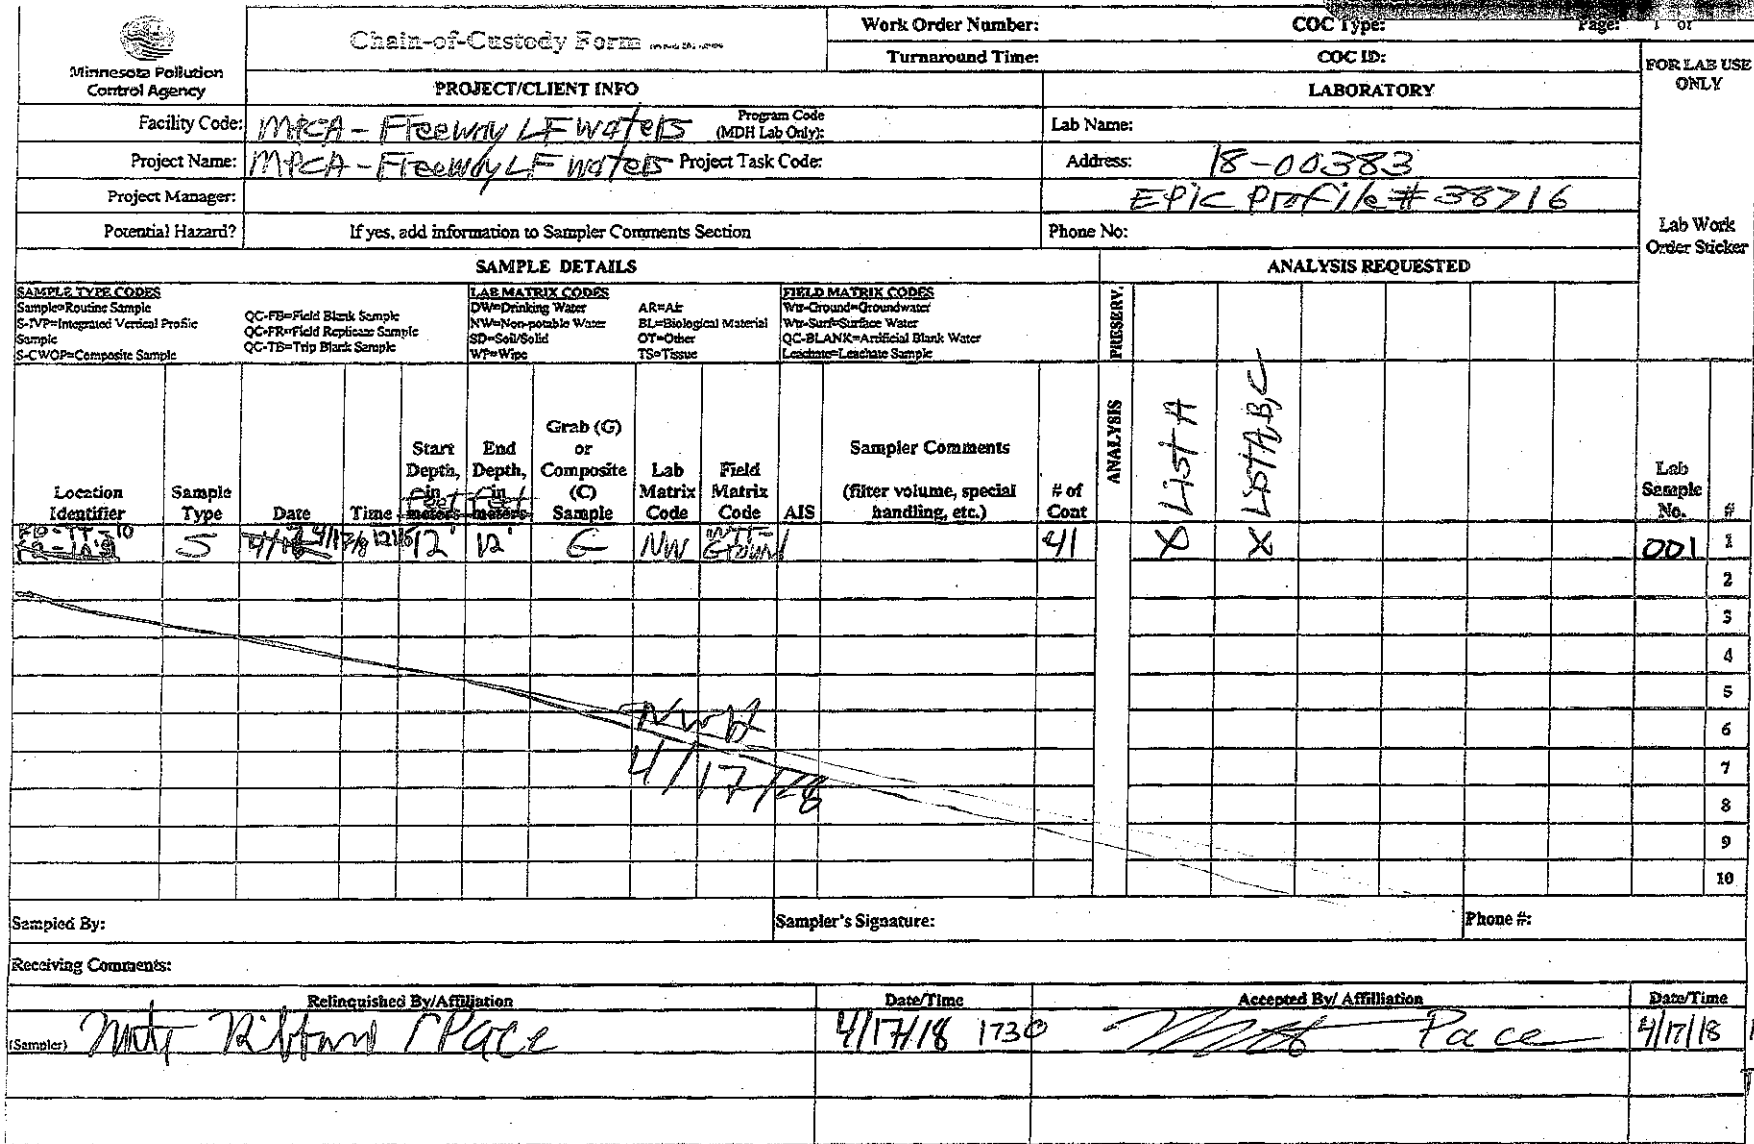 Work Order Number:
COC Type:
Page: 1 of
Minnesota Pollution
Control Agency
Chain-of-Custody Form
Turnaround Time:
COC ID:
FOR LAB USE
ONLY
PROJECT/CLIENT INFO
LABORATORY
Facility Code: MPCA - Freeway LF Waters
Program Code
(MDH Lab Only):
Lab Name:
Project Name: MPCA - Freeway LF Waters Project Task Code:
Address: 18-00383
Project Manager:
EPIC Profile # 38716
Potential Hazard?
If yes, add information to Sampler Comments Section
Phone No:
Lab Work
Order Sticker
SAMPLE DETAILS
ANALYSIS REQUESTED
SAMPLE TYPE CODES
Sample=Routine Sample
S-IVP=Integrated Vertical Profile
Sample
S-CWOP=Composite Sample
QC-FB=Field Blank Sample
QC-FR=Field Replicate Sample
QC-TB=Trip Blank Sample
LAB MATRIX CODES
DW=Drinking Water
NW=Non-potable Water
SD=Soil/Solid
WP=Wipe
AR=Air
BL=Biological Material
OT=Other
TS=Tissue
FIELD MATRIX CODES
Wtr-Ground=Groundwater
Wtr-Surf=Surface Water
QC-BLANK=Artificial Blank Water
Leachate=Leachate Sample
PRESERV.
ANALYSIS
List A
List A,B,C
Location
Identifier
Sample
Type
Date
Time
Start
Depth,
in
meters
feet
End
Depth,
in
meters
feet
Grab (G)
or
Composite
(C)
Sample
Lab
Matrix
Code
Field
Matrix
Code
AIS
Sampler Comments
(filter volume, special
handling, etc.)
# of
Cont
Lab
Sample
No.
#
S
12'
12'
G
NW
41
X
X
001
1
2
3
4
5
6
7
8
9
10
4/17/18
Sampled By:
Sampler's Signature:
Phone #:
Receiving Comments:
Relinquished By/Affiliation
Date/Time
Accepted By/ Affilliation
Date/Time
(Sampler)
/ Pace
4/17/18 1730
Pace
4/17/18